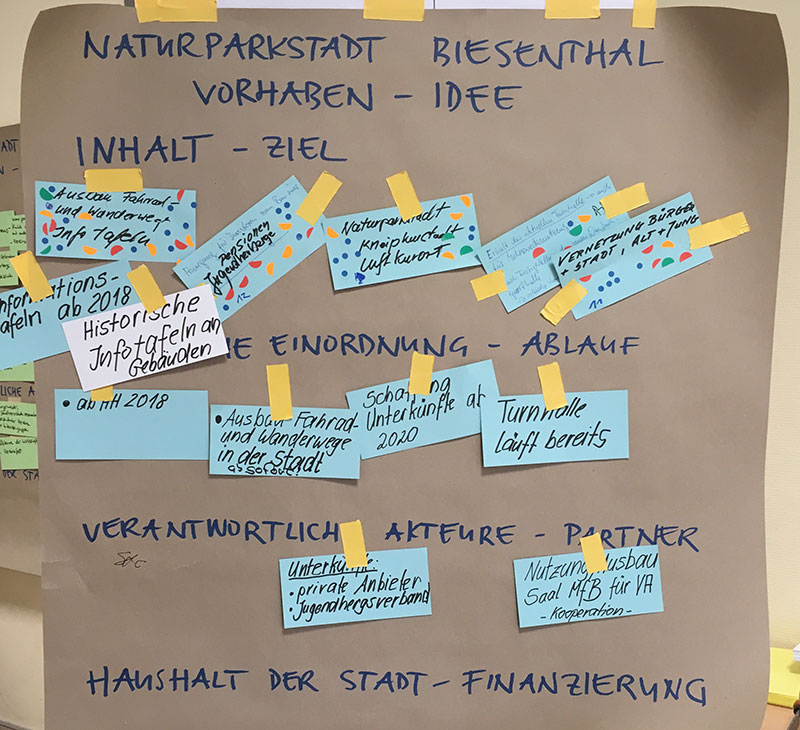 NATURPARKSTADT BIESENTHAL
VORHABEN – IDEE
INHALT – ZIEL
Ausbau Fahrad-
und Wanderwege
Info Tafeln
Pensionen
Jugendherberge
12
Naturparkstadt
Kneipkurstadt
Luftkurort
VERNETZUNG BÜRGER
+ STADT, ALT + JUNG
11
nformations-
afeln ab 2018
Historische
Infotafeln an
Gebäuden
HE EINORDNUNG – ABLAUF
• ab HH 2018
• Ausbau Fahrrad-
und Wanderwege
in der Stadt
ab sofort
Schaffung
Unterkünfte ab
2020
Turnhalle
läuft bereits
VERANTWORTLICH AKTEURE – PARTNER
Unterkünfte:
• private Anbieter
• Jugendhergsverband
Nutzung Ausbau
Saal MfB für VA
- Kooperation -
HAUSHALT DER STADT – FINANZIERUNG